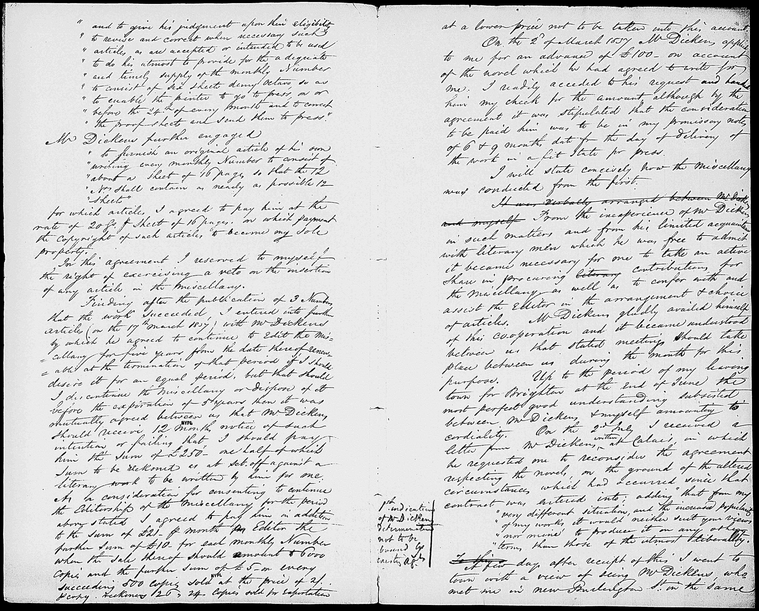 " and to give his judgement upon their eligibility
" to revise and correct when necessary such
" articles as are accepted or intended to be used
" to do his utmost to provide for the adequate
" and timely supply of the monthly Number
" to consist of six sheets demy octavo so as
" to enable the printer to go to press on or
" before the 24th of every month and to correct
" the proof sheets and send them to press"
Mr Dickens further engaged
" to furnish an original article of his own
" writing every monthly Number to consist of
" about a sheet of 16 pages so that the 12
" Nos shall contain as nearly as possible 12
" sheets"
for which articles, I agreed to pay him at the
rate of 20 Gs Sheet of 16 pages; on which payment
the Copyright of such articles, to become my sole
property.
In this agreement I reserved to myself
the right of exercising a veto on the insertion
of any article in the Miscellany.
Finding after the publication of 3 Numbers
that the work succeeded, I entered into further
Articles (on the 17th March 1837) with Mr Dickens
by which he agreed to continue to Edit the Mis
" cellany for five years from the date thereof renew
" able at the termination of that period if I should
desire it for an equal period, but that should
I discontinue the Miscellany or dispose of it
before the expiration of 5 years then it was
mutually agreed between us that Mr Dickens
should receive 12 Months notice of such
intention or failing that I should pay
him the Sum of £250 - one half of which
Sum to be reckoned as a set off against a
literary work to be written by him for me.
As a consideration for consenting to continue
the Editorship of the Miscellany for the period
above stated I agreed to pay him in addition
to the Sum of £21 month for Editor the
further Sum of £10 for each monthly Number
when the Sale thereof should amount to 6000
Copies and the further Sum of £5 on every
succeeding 500 Copies sold at the price of 2/-
copy. reckoning 125; 24 Copies sold for exportation
at a lower price not to be taken into this account.
On the 2d of March 1837 Mr Dickens applied
to me for an advance of £100. on account
of the novel which he had agreed to write for
me. I readily acceded to his request and handed
him my check for the amount, although by the
agreement it was stipulated that the consideration
to be paid him was to be in my promissory notes
of 6 & 9 months date from the day of delivery of
the work in a fit state for press
I will state concisely how the Miscellany
was conducted from the first.
It was verbally arranged between Mr Dickens
and myself From the inexperience of Mr Dickens
in such matters and from his limited acquaintance
with literary men which he was free to admit
it became necessary for me to take an active
share in procuring literary contributions for
the Miscellany as well as to confer with and
assist the Editor in the arrangement & choice
of articles. Mr Dickens gladly availed himself
of this cooperation and it became understood
between us that stated meetings should take
place between us during the month for this
purpose. Up to the period of my leaving
town for Brighton at the end of June the
most perfect good understanding subsisted
between Mr Dickens & myself amounting to
cordiality. On the 2d July I received a
letter from Mr Dickens, written at Calais, in which
he requested me to reconsider the agreement
respecting the novels, on the ground of the altered
circumstances which had occurred since that
contract was entered into; adding "that from my
" very different situation, and the increased popularity
" of my works it would neither suit your views
" nor mine to produce it on any other
" terms than those of the utmost liberality."
A few day after receipt of this I went to
town with a view of seeing Mr Dickens, who
met me in New Burlington St. on the same
1st indication
of Mr Dickens
determination
not to be
bound by